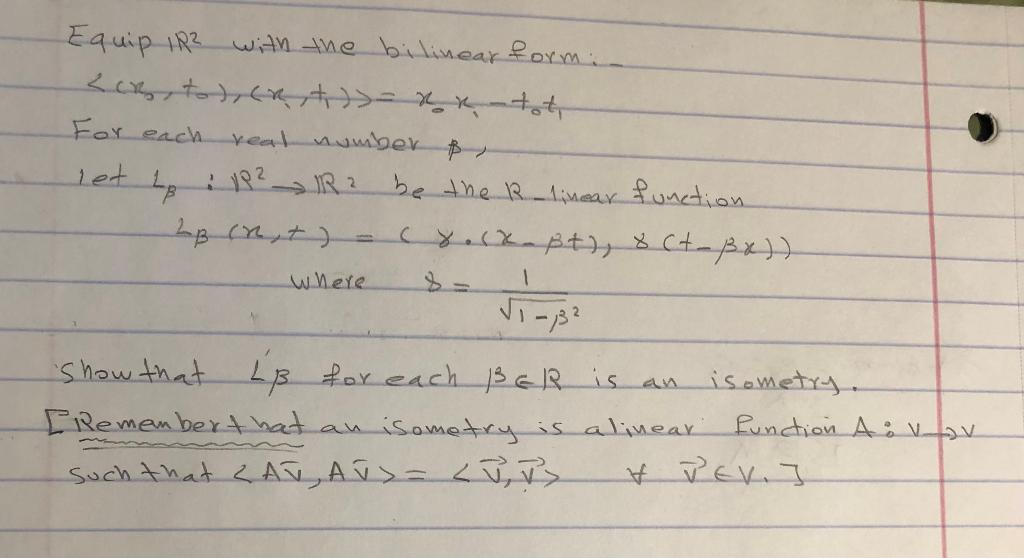 Equip IR² with the bilinear form:-
<(x₀, t₀), (x₁, t₁)> = x₀x₁ - t₀t₁
For each real number β,
let L_β : IR² → IR² be the R-linear function
L_β (x, t) = (γ.(x-βt), γ(t-βx))
where γ = 1/√(1-β²)
show that L_β for each β∈R is an isometry.
[Remember that an isometry is a linear function A: V→V
such that <Av̄, Av̄> = <v⃗, v⃗> ∀ v⃗∈V.]